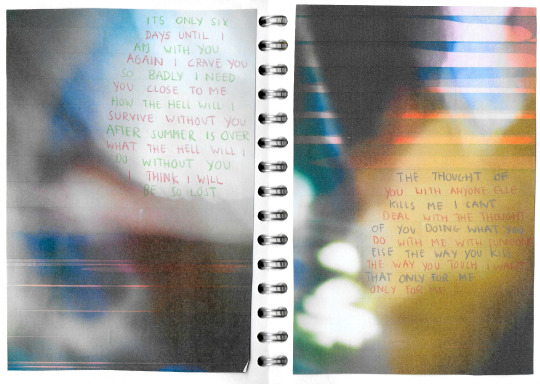 ITS ONLY SIX
DAYS UNTIL I
AM WITH YOU
AGAIN I CRAVE YOU
SO BADLY I NEED
YOU CLOSE TO ME
HOW THE HELL WILL I
SURVIVE WITHOUT YOU
AFTER SUMMER IS OVER
WHAT THE HELL WILL I
DO WITHOUT YOU
I THINK I WILL
BE SO LOST
THE THOUGHT OF
YOU WITH ANYONE ELSE
KILLS ME I CANT
DEAL WITH THE THOUGHT
OF YOU DOING WHAT YOU
DO WITH ME WITH SOMEONE
ELSE THE WAY YOU KISS
THE WAY YOU TOUCH I WANT
THAT ONLY FOR ME
ONLY FOR ME